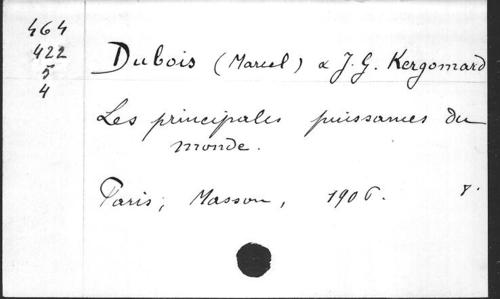 464
422
5
4
Dubois (Marcel) & J. G. Kergomard
Les principales puissances du
monde.
Paris, Masson, 1906. 8.